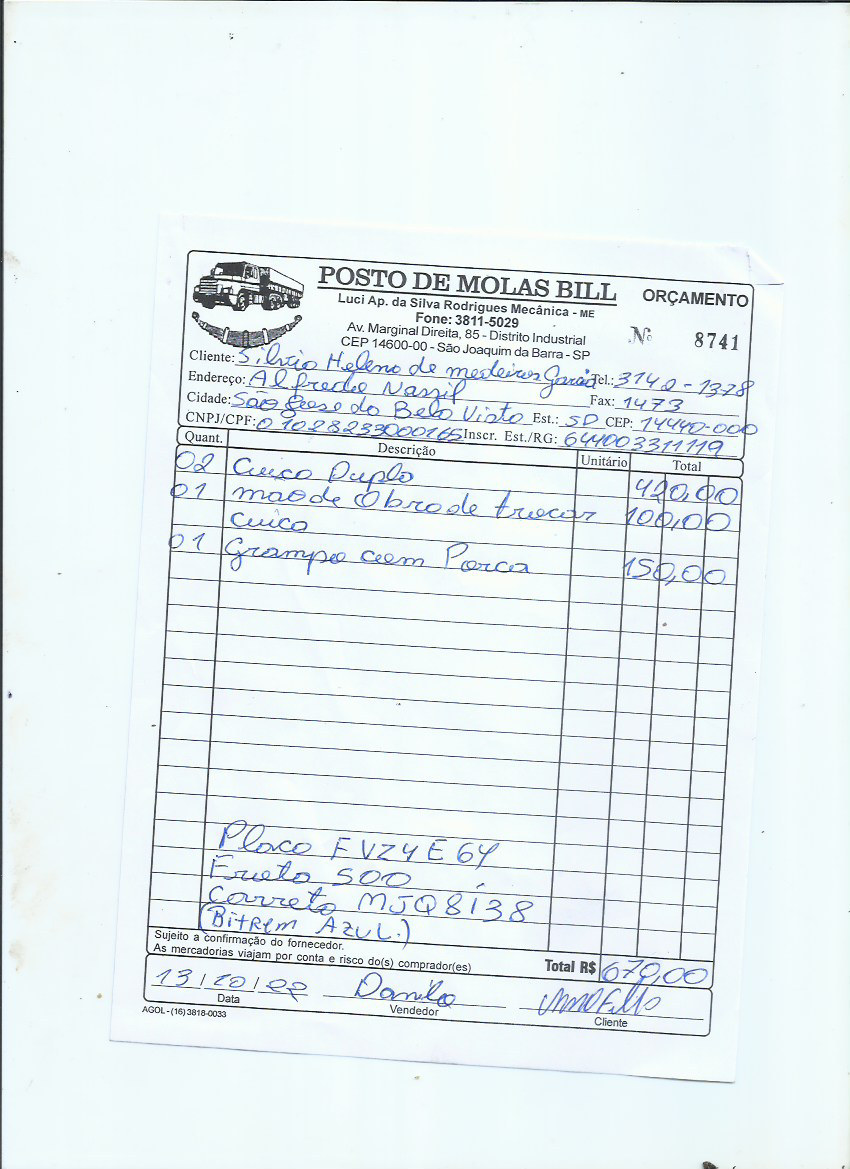 POSTO DE MOLAS BILL
ORÇAMENTO
Luci Ap. da Silva Rodrigues Mecânica - ME
Fone: 3811-5029
Av. Marginal Direita, 85 - Distrito Industrial
CEP 14600-00 - São Joaquim da Barra - SP
Nº 8741
Cliente: Silvio Heleno de medeiros Tel.: 3140-1378
Endereço: Alfredo Fax: 1473
Cidade: Sao Jose do Bela Vista Est.: SP CEP: 14440-000
CNPJ/CPF: 01028233000165 Inscr. Est./RG: 644003311119
Quant. Descrição Unitário Total
02 Cuica Duplo 420,00
01 mao de Obra de trocar 100,00
Cuica
01 Grampo com Porca 150,00
Placa FVZ4E64
Frota 500
Carreta MJQ8138
(Bitrem AZUL.)
Sujeito a confirmação do fornecedor.
As mercadorias viajam por conta e risco do(s) comprador(es)
Total R$ 670,00
13/10/22 Danilo
Data Vendedor Cliente
AGOL - (16) 3818-0033